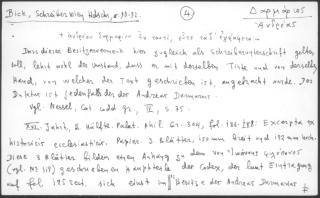 Bick, Schreiber Wien. Hdschr., S. 90-92.
④
Δαρμάριος
Ἀνδρέας
Dass diese Besitzervermerk hier zugleich als Schreiberunterschrift gelten
soll, lehrt wohl der Umstand, dass er mit derselben Tinte und von derselben
Hand, von welcher der Text geschrieben ist, angebracht wurde. Der
Duktus ist jedenfalls der der Andreas Darmarios.
vgl. Nessel, Cat. codd. gr., IV, S. 75.
XVI. Jahrh. 2. Hälfte. Palat. Phil. Gr. 344, fol. Excerpta ex
historicis ecclesiasticis. Papier. 3 Blätter, 150 mm breit und 192 mm hoch.
Diese 3 Blätter bilden einen Anhang zu dem von Ἰωάννης
(vgl. Nr. 119) geschriebenen Hauptteile der Codex, der laut Eintragung
auf fol 185 rect. sich einst im Besitze der Andreas Darmarios